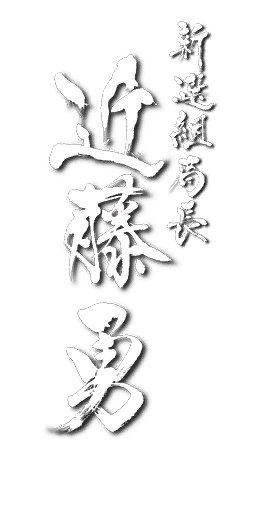 新選組局長
近藤勇